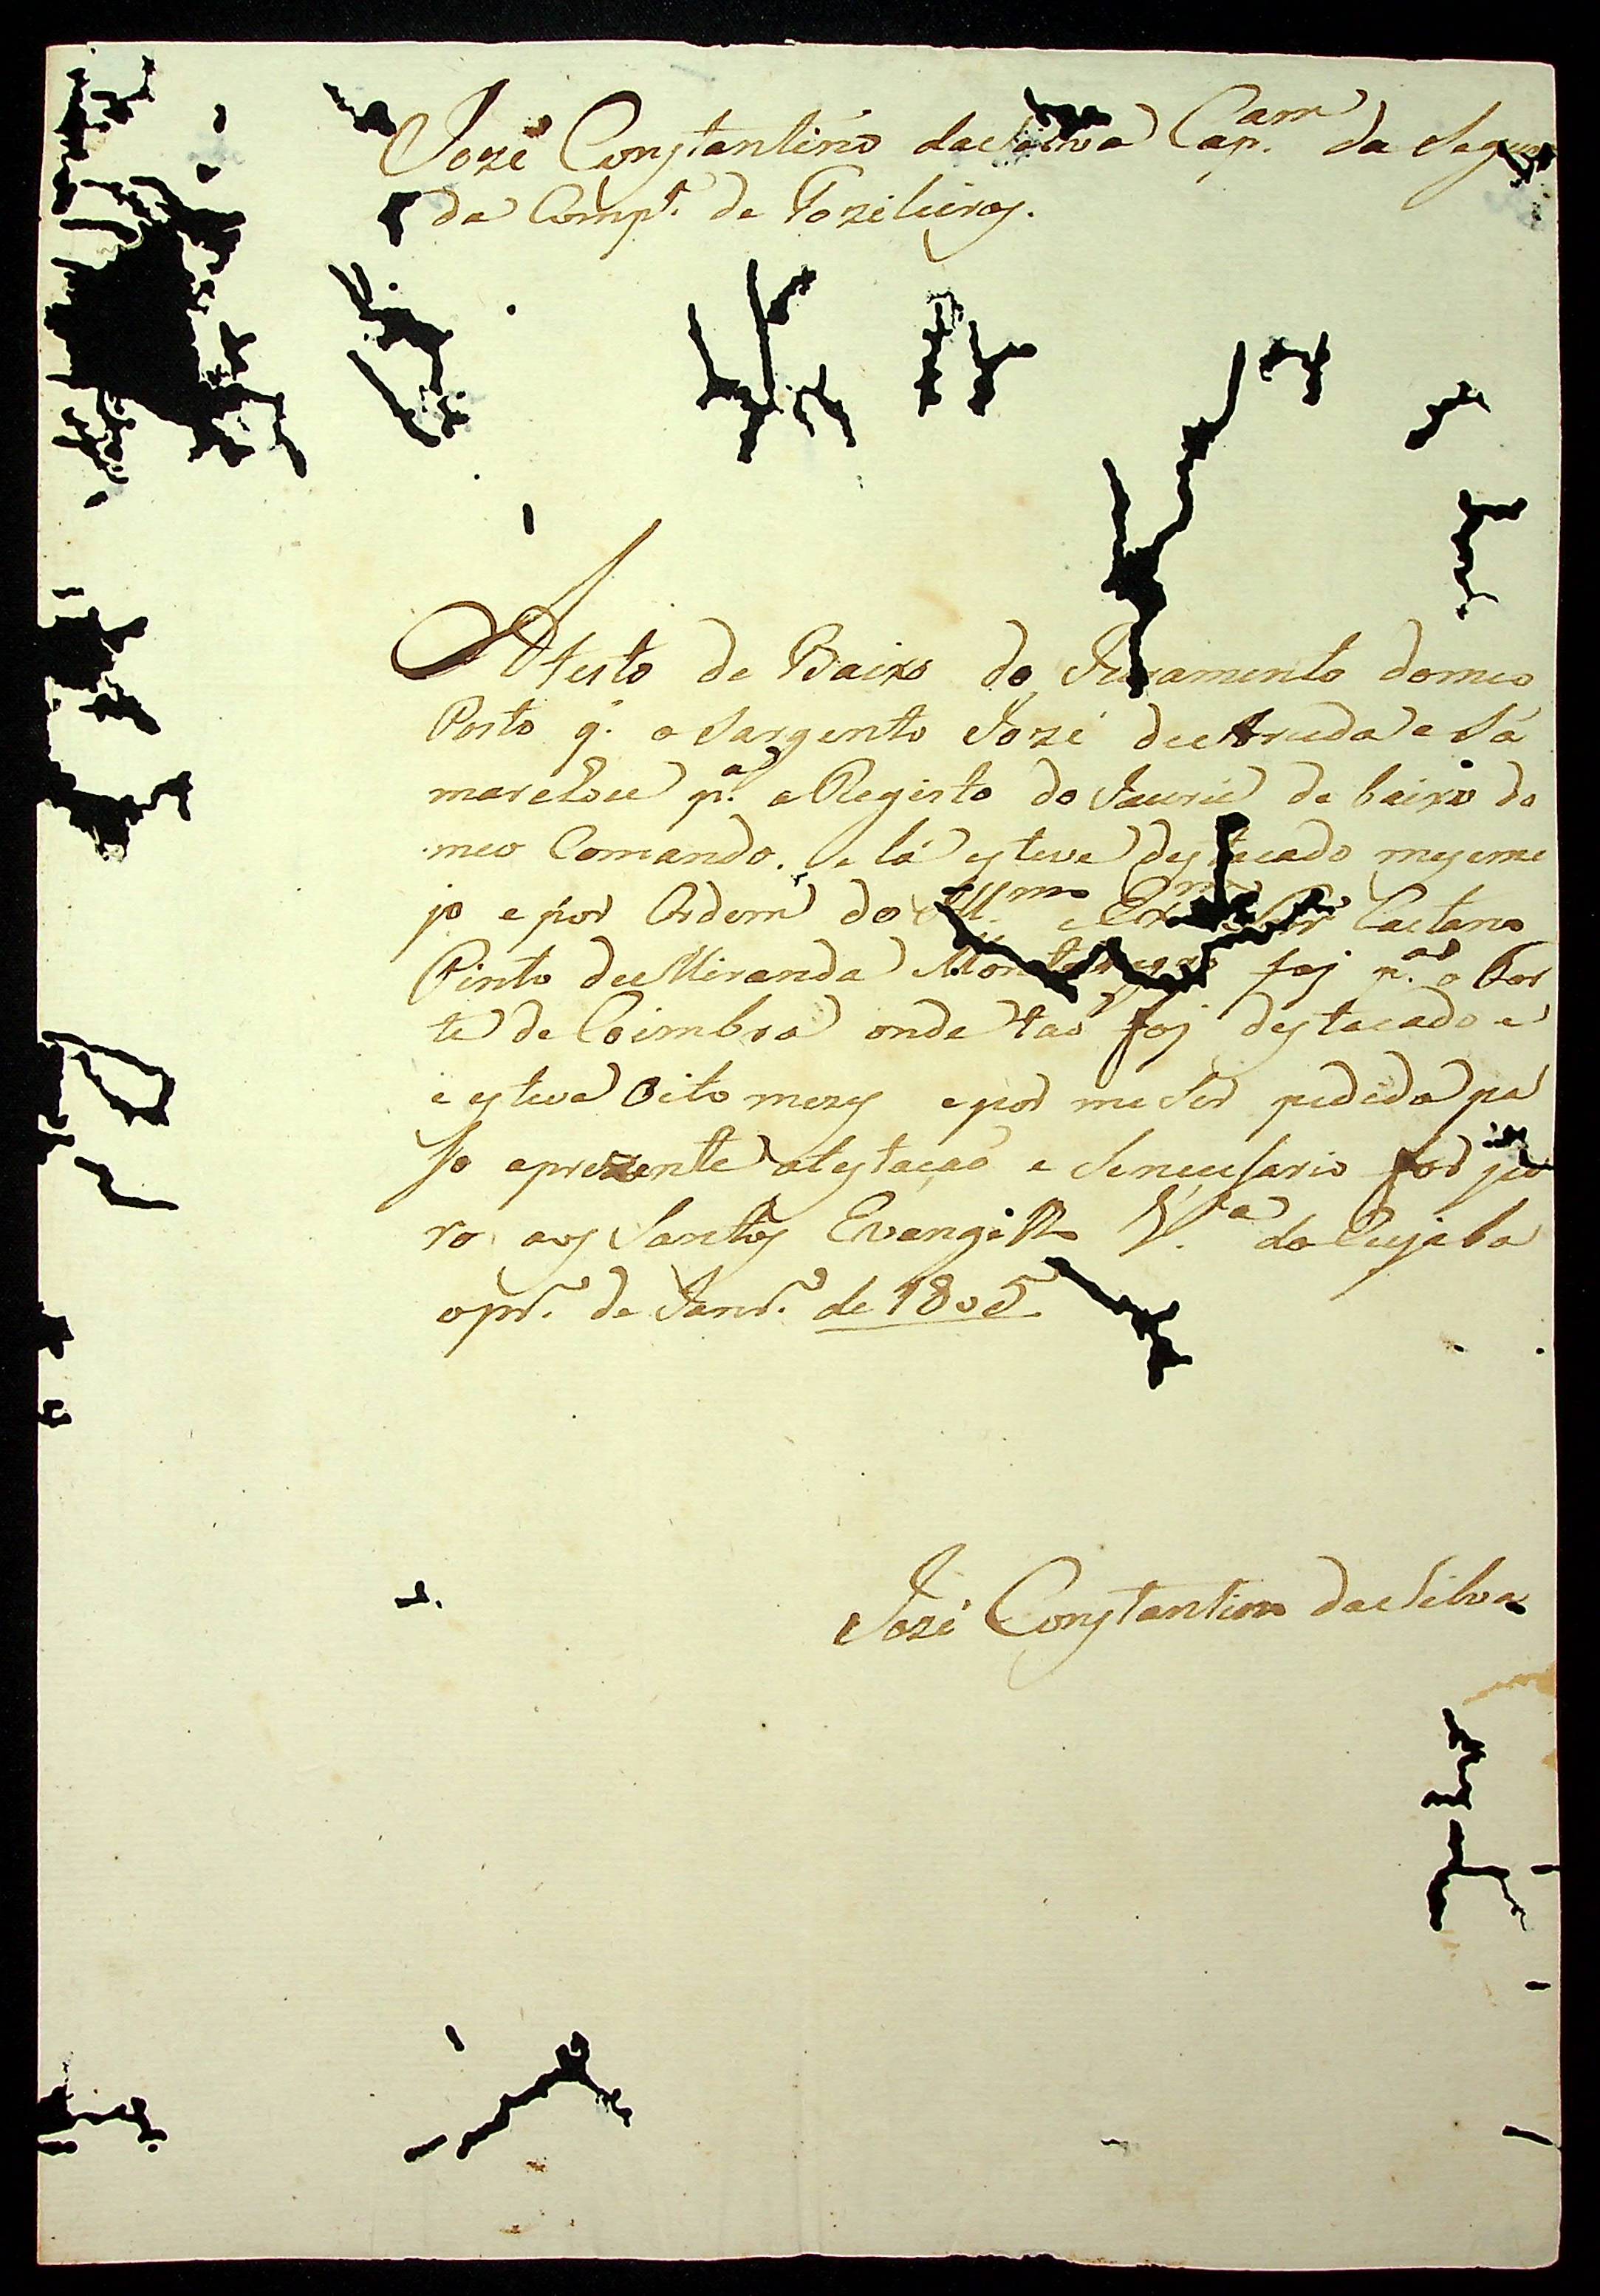 Jozé Constantino da Silva Cap.am da Segun
da Comp.ª de Fozileiros.
Atesto de Baixo do Juramento do meo
Posto q.' o Sargento Jozé de Aruda e Sá
marchou p.ª o Registo do Jauru de baixo do
meo Comando. e lá esteve destacado mes e me
jo e por Ordem do Ill.mo e Ex.mo Snr Caetano
Pinto de Miranda Montenegro foj p.ª o For
te de Coimbra onde foj destacado e
e esteve Oito mezes e por me Ser pedida pa
so a prezente atestação e Se necessario for ju
ro aos Santos Evang.os V.ª do Cujaba
o pr.º de Janr.º de 1805
Jozé Constantino da Silva